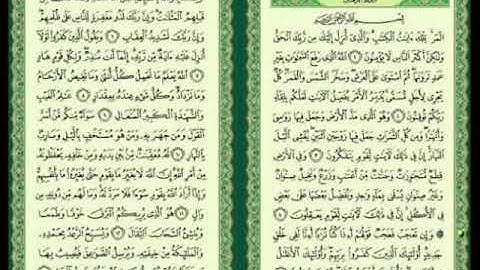 بِسْمِ اللَّهِ الرَّحْمَٰنِ الرَّحِيمِ
الٓمٓر تِلْكَ ءَايَٰتُ الْكِتَٰبِ وَالَّذِىٓ أُنزِلَ إِلَيْكَ مِن رَّبِّكَ الْحَقُّ
وَلَٰكِنَّ أَكْثَرَ النَّاسِ لَا يُؤْمِنُونَ ١ اللَّهُ الَّذِى رَفَعَ السَّمَٰوَٰتِ بِغَيْرِ
عَمَدٍ تَرَوْنَهَا ثُمَّ اسْتَوَىٰ عَلَى الْعَرْشِ وَسَخَّرَ الشَّمْسَ وَالْقَمَرَ كُلٌّ
يَجْرِى لِأَجَلٍ مُّسَمًّى يُدَبِّرُ الْأَمْرَ يُفَصِّلُ الْءَايَٰتِ لَعَلَّكُم بِلِقَآءِ رَبِّكُمْ
تُوقِنُونَ ٢ وَهُوَ الَّذِى مَدَّ الْأَرْضَ وَجَعَلَ فِيهَا رَوَٰسِىَ
وَأَنْهَٰرًا وَمِن كُلِّ الثَّمَرَٰتِ جَعَلَ فِيهَا زَوْجَيْنِ اثْنَيْنِ يُغْشِى الَّيْلَ
النَّهَارَ إِنَّ فِى ذَٰلِكَ لَءَايَٰتٍ لِّقَوْمٍ يَتَفَكَّرُونَ ٣ وَفِى الْأَرْضِ
قِطَعٌ مُّتَجَٰوِرَٰتٌ وَجَنَّٰتٌ مِّنْ أَعْنَٰبٍ وَزَرْعٌ وَنَخِيلٌ صِنْوَانٌ
وَغَيْرُ صِنْوَانٍ يُسْقَىٰ بِمَآءٍ وَٰحِدٍ وَنُفَضِّلُ بَعْضَهَا عَلَىٰ بَعْضٍ
فِى الْأُكُلِ إِنَّ فِى ذَٰلِكَ لَءَايَٰتٍ لِّقَوْمٍ يَعْقِلُونَ ٤
وَإِن تَعْجَبْ فَعَجَبٌ قَوْلُهُمْ أَءِذَا كُنَّا تُرَٰبًا أَءِنَّا لَفِى خَلْقٍ
جَدِيدٍ أُو۟لَٰٓئِكَ الَّذِينَ كَفَرُوا۟ بِرَبِّهِمْ وَأُو۟لَٰٓئِكَ الْأَغْلَٰلُ
قَبْلِهِمُ الْمَثُلَٰتُ وَإِنَّ رَبَّكَ لَذُو مَغْفِرَةٍ لِّلنَّاسِ عَلَىٰ
ظُلْمِهِمْ وَإِنَّ رَبَّكَ لَشَدِيدُ الْعِقَابِ ٦ وَيَقُولُ الَّذِينَ كَفَرُوا۟ لَوْلَآ
أُنزِلَ عَلَيْهِ ءَايَةٌ مِّن رَّبِّهِ إِنَّمَآ أَنتَ مُنذِرٌ وَلِكُلِّ قَوْمٍ هَادٍ
٧ اللَّهُ يَعْلَمُ مَا تَحْمِلُ كُلُّ أُنثَىٰ وَمَا تَغِيضُ الْأَرْحَامُ
وَمَا تَزْدَادُ وَكُلُّ شَىْءٍ عِندَهُ بِمِقْدَارٍ ٨ عَٰلِمُ الْغَيْبِ
وَالشَّهَٰدَةِ الْكَبِيرُ الْمُتَعَالِ ٩ سَوَآءٌ مِّنكُم مَّنْ أَسَرَّ
الْقَوْلَ وَمَن جَهَرَ بِهِ وَمَنْ هُوَ مُسْتَخْفٍ بِالَّيْلِ وَسَارِبٌ
بِالنَّهَارِ ١٠ لَهُ مُعَقِّبَٰتٌ مِّنۢ بَيْنِ يَدَيْهِ وَمِنْ خَلْفِهِ يَحْفَظُونَهُ
مِنْ أَمْرِ اللَّهِ إِنَّ اللَّهَ لَا يُغَيِّرُ مَا بِقَوْمٍ حَتَّىٰ يُغَيِّرُوا۟ مَا بِأَنفُسِهِمْ
وَإِذَآ أَرَادَ اللَّهُ بِقَوْمٍ سُوٓءًا فَلَا مَرَدَّ لَهُ وَمَا لَهُم مِّن دُونِهِ مِن
وَالٍ ١١ هُوَ الَّذِى يُرِيكُمُ الْبَرْقَ خَوْفًا وَطَمَعًا
وَيُنشِئُ السَّحَابَ الثِّقَالَ ١٢ وَيُسَبِّحُ الرَّعْدُ بِحَمْدِهِ
وَالْمَلَٰٓئِكَةُ مِنْ خِيفَتِهِ وَيُرْسِلُ الصَّوَٰعِقَ فَيُصِيبُ بِهَا